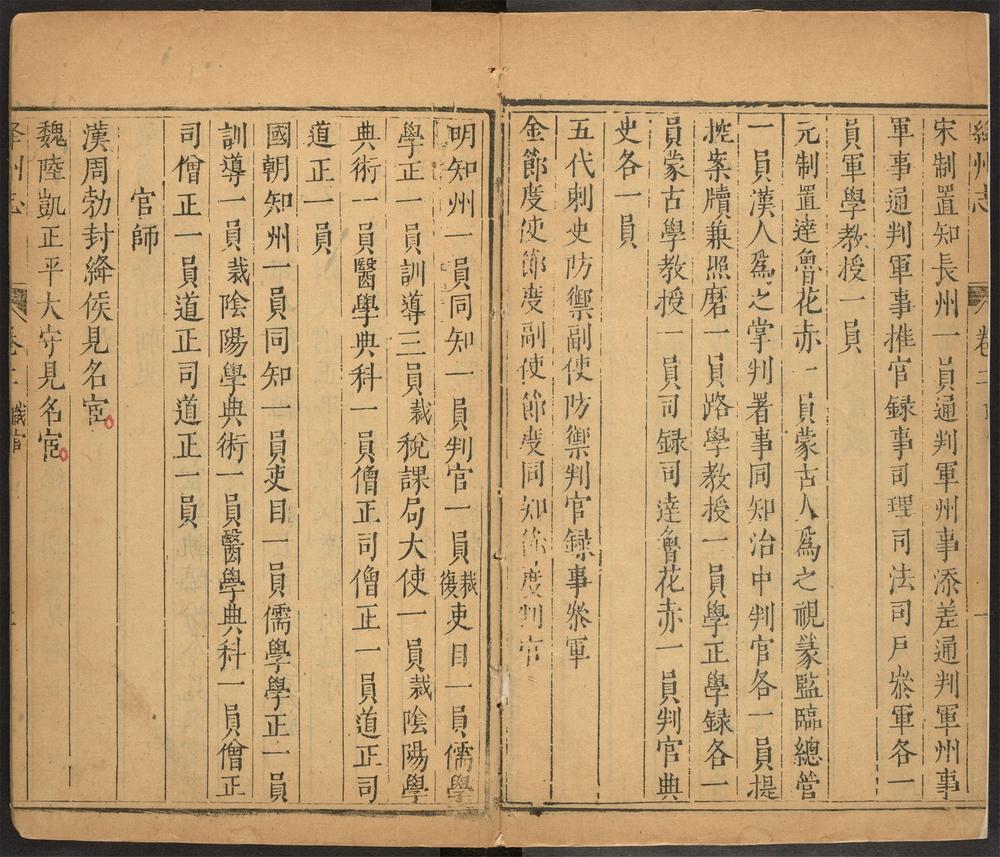 絳州志 卷二
宋制置知長州一員通判軍州事添差通判軍州事
軍事通判軍事推官録事司理司法司戸叅軍各一
員軍學教授一員
元制置達魯花赤一員蒙古人爲之視篆監臨總管
一員漢人爲之掌判署事同知治中判官各一員提
控案牘兼照磨一員路學教授一員學正學録各一
員蒙古學教授一員司録司達魯花赤一員判官典
史各一員
五代刺史防禦副使防禦判官録事叅軍
金節度使節度副使節度同知節度判官
明知州一員同知一員判官一員裁復吏目一員儒學
學正一員訓導三員裁稅課局大使一員裁陰陽學
典術一員醫學典科一員僧正司僧正一員道正司
道正一員
國朝知州一員同知一員吏目一員儒學學正一員
訓導一員裁陰陽學典術一員醫學典科一員僧正
司僧正一員道正司道正一員
官師
漢周勃封絳侯見名宦
魏陸凱正平太守見名宦
絳州志 卷二 職官